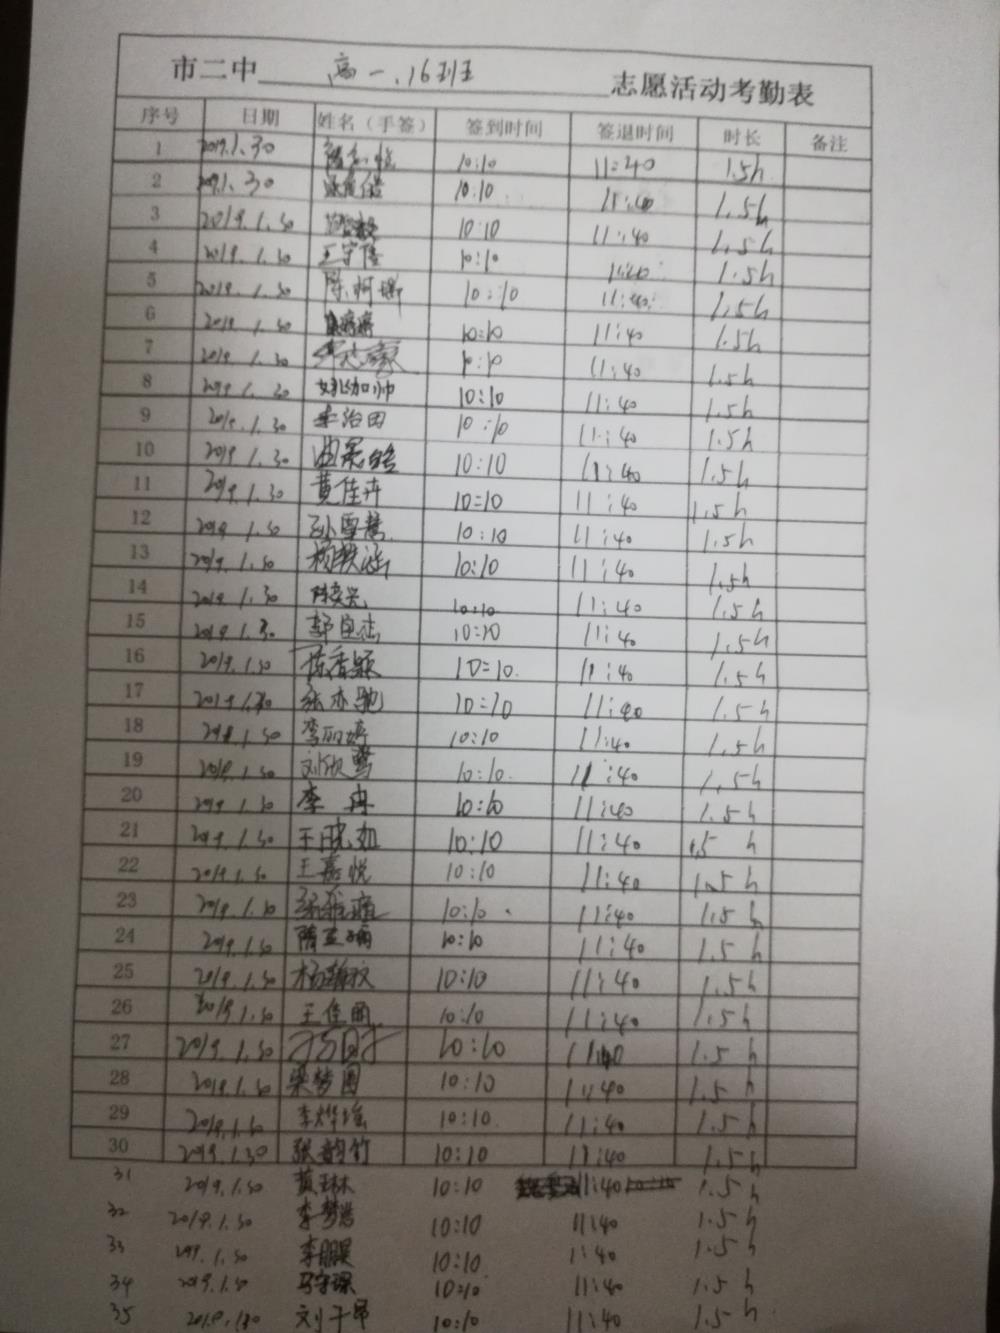 市二中 高一.16班 志愿活动考勤表
序号 日期 姓名（手签） 签到时间 签退时间 时长 备注
1 2019.1.30 10:10 11:40 1.5h
2 2019.1.30 10:10 11:40 1.5h
3 2019.1.30 10:10 11:40 1.5h
4 2019.1.30 王守信 10:10 11:40 1.5h
5 2019.1.30 陈柯娜 10:10 11:40 1.5h
6 2019.1.30 10:10 11:40 1.5h
7 2019.1.30 10:10 11:40 1.5h
8 2019.1.30 姚加帅 10:10 11:40 1.5h
9 2019.1.30 李治田 10:10 11:40 1.5h
10 2019.1.30 10:10 11:40 1.5h
11 2019.1.30 黄佳卉 10:10 11:40 1.5h
12 2019.1.30 孙雪慧 10:10 11:40 1.5h
13 2019.1.30 杨轶涵 10:10 11:40 1.5h
14 2019.1.30 10:10 11:40 1.5h
15 2019.1.30 10:10 11:40 1.5h
16 2019.1.30 陈香颖 10:10 11:40 1.5h
17 2019.1.30 张亦驰 10:10 11:40 1.5h
18 2019.1.30 李丽婷 10:10 11:40 1.5h
19 2019.1.30 刘欣鹭 10:10 11:40 1.5h
20 2019.1.30 李冉 10:10 11:40 1.5h
21 2019.1.30 王晓如 10:10 11:40 1.5h
22 2019.1.30 王嘉悦 10:10 11:40 1.5h
23 2019.1.30 10:10 11:40 1.5h
24 2019.1.30 10:10 11:40 1.5h
25 2019.1.30 10:10 11:40 1.5h
26 2019.1.30 王佳雨 10:10 11:40 1.5h
27 2019.1.30 10:10 11:40 1.5h
28 2019.1.30 梁梦圆 10:10 11:40 1.5h
29 2019.1.30 李烨瑶 10:10 11:40 1.5h
30 2019.1.30 张韵竹 10:10 11:40 1.5h
31 2019.1.30 黄琳 10:10 11:40 1.5h
32 2019.1.30 10:10 11:40 1.5h
33 2019.1.30 李鹏昊 10:10 1:40 1.5h
34 2019.1.30 马守琛 10:10 11:40 1.5h
35 2019.1.30 刘子昂 10:10 11:40 1.5h